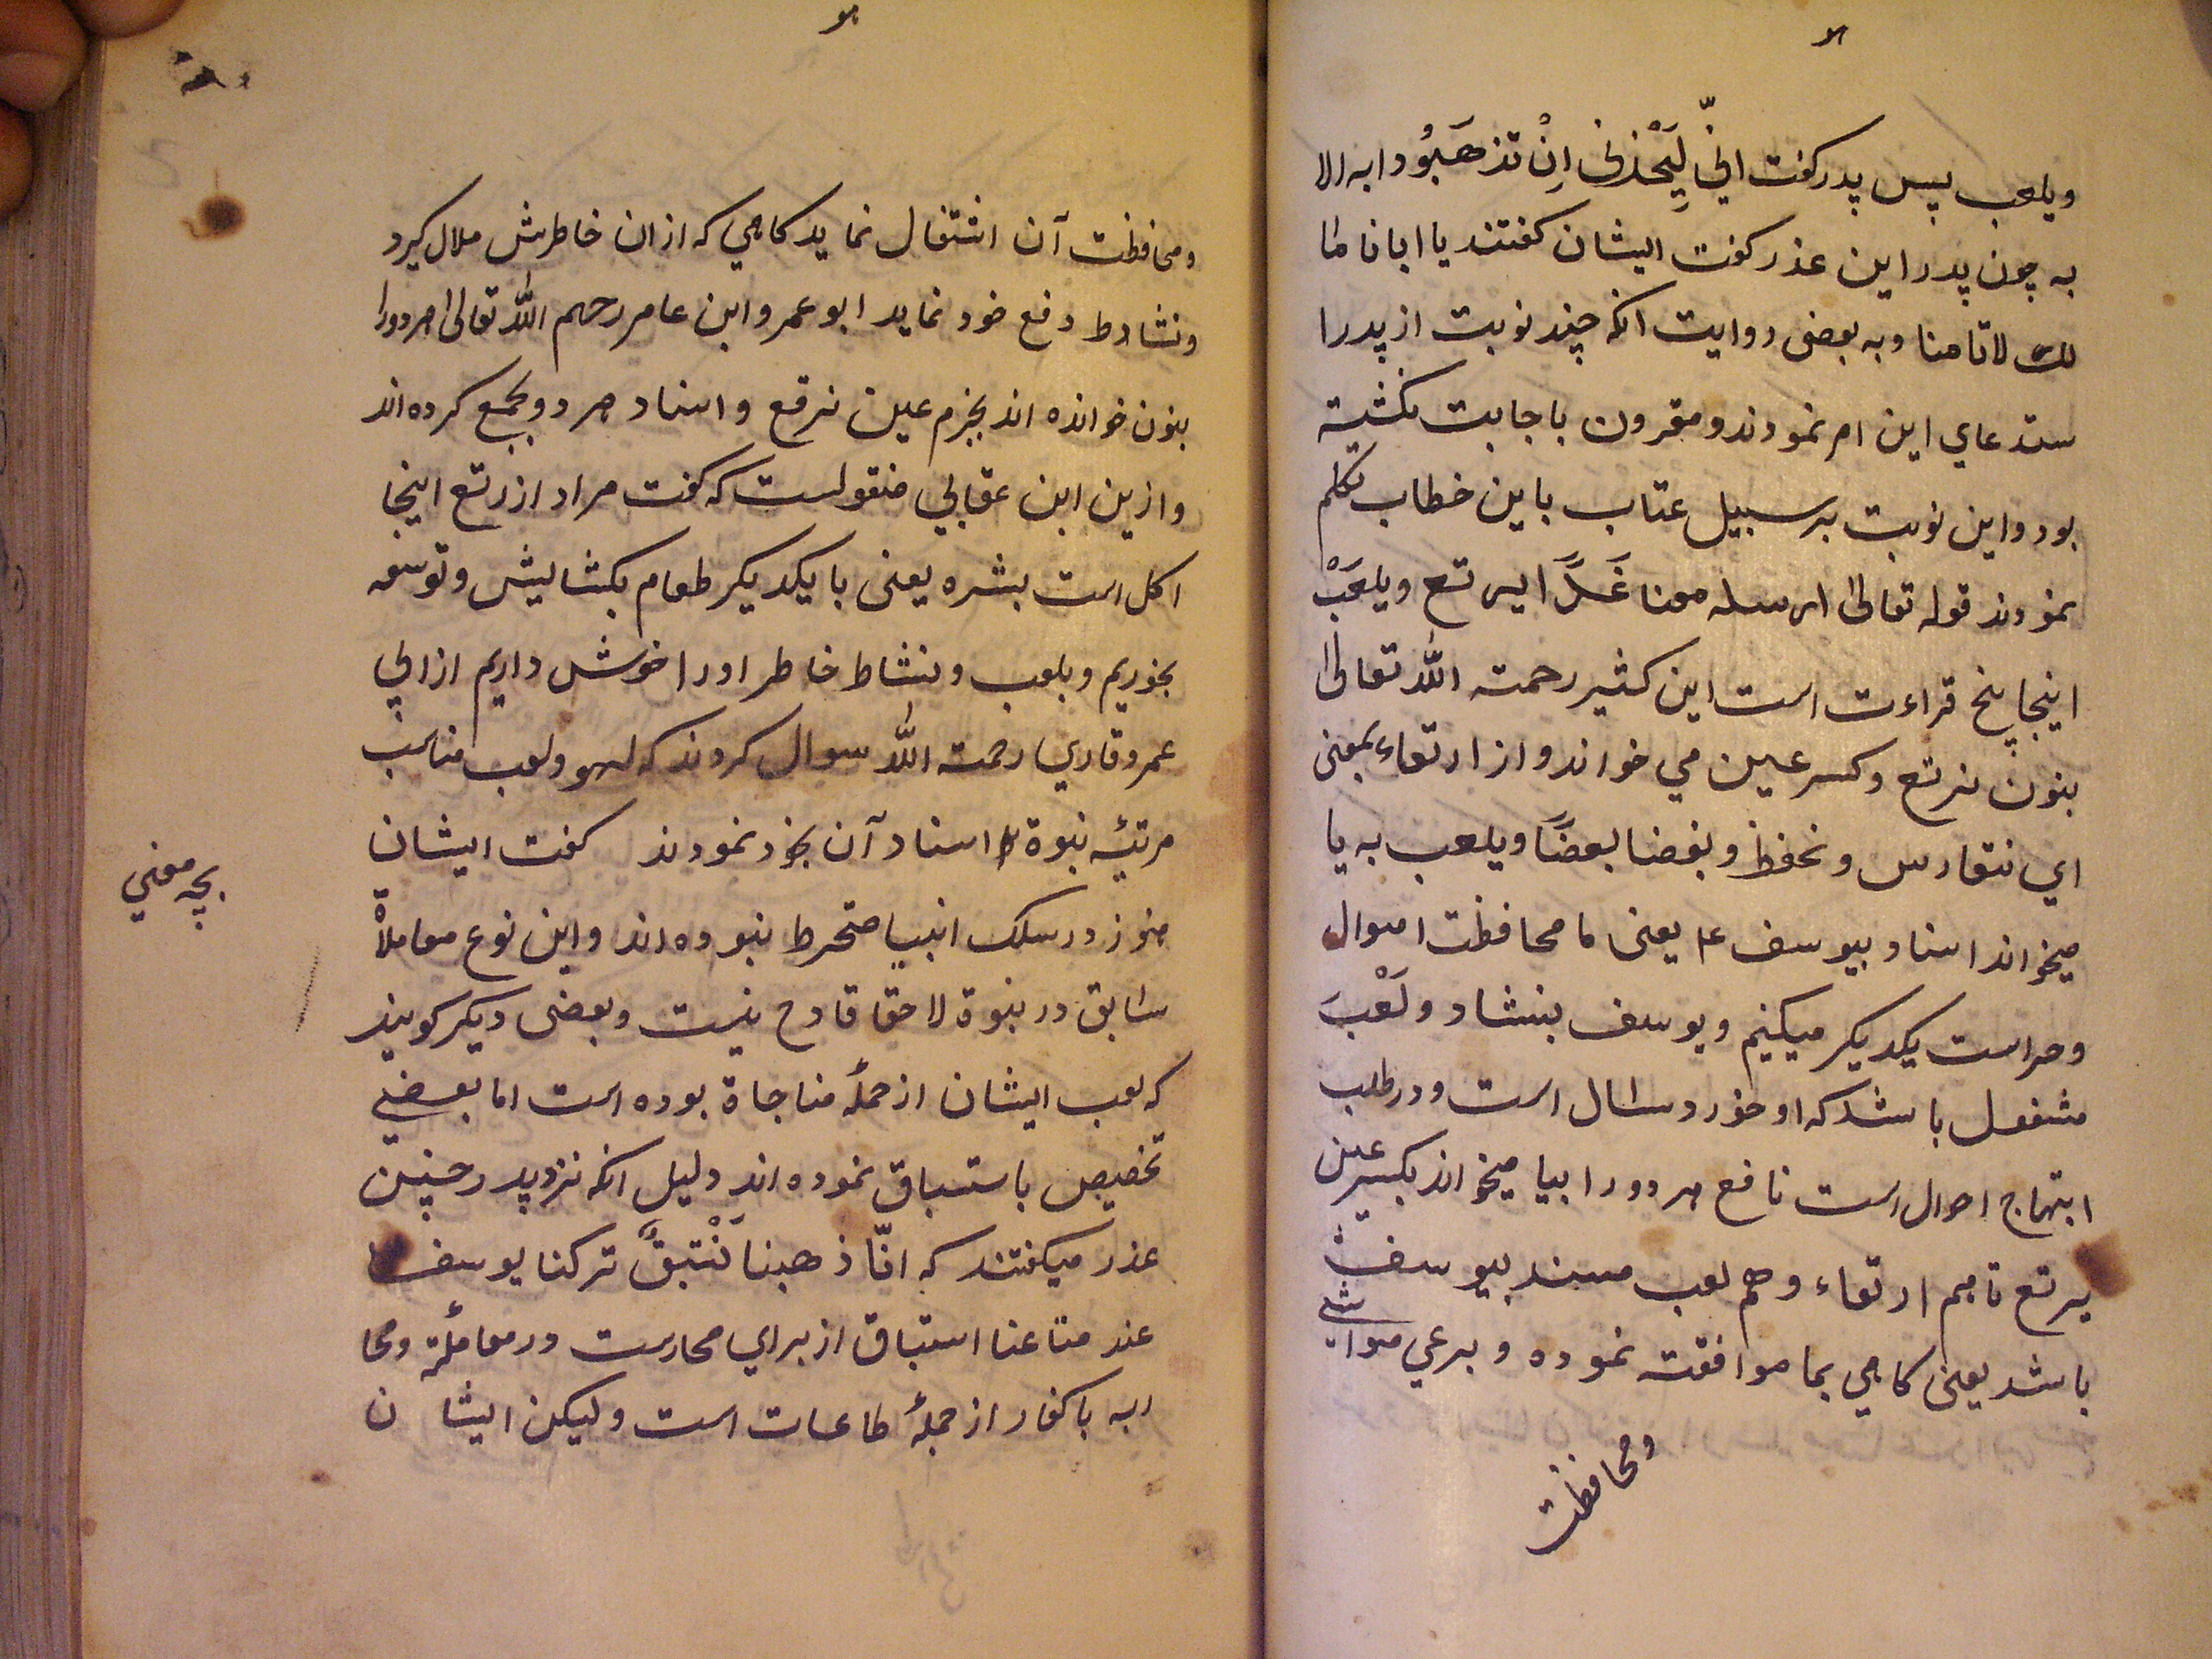 ويلعب پس پدر كفت انيّ لِيَحْزنى اِنْ تذهَبوُا به الا
به چون پدر اين عذر كفت ايشان كفتند يا ابانا ما
لك لاتامنا وبه بعضى روايت انكه چند نوبت از پدر ا
ستدعاي اين امر نمودند ومقرون باجابت نكشته
بود واين نوبت بر سبيل عتاب باين خطاب تكلم
نمودند قوله تعالى ارسله معنا غَدًا يرتع ويلعَبْ
اينجا پنج قراءت است ابن كثير رحمته الله تعالى
بنون نرتع وكسر عين مي خواند واز ارتعاء بمعنى
اي نتقارس ونحفظ وبعضنا بعضًا ويلعب به يا
ميخواند اسناد بيوسف ع يعنى ما محافظت اموال
وحراست يكديكر ميكنيم ويوسف بنشاد ولَعْبَ
مشغول باشد كه او خورد سال است ودر طلب
ابتهاج احوال است نافع هر دو را بيا ميخواند بكسر عين
يرتع تاهم ارتعاء وهم لعب مسند بيوسف
باشد يعنى كاهي بما موافقت نموده وبرعي مواشي
ومحافظت
ومحافظت آن اشتغال نمايد كاهي كه ازان خاطرش ملال كيرد
ونشاط دفع خود نمايد ابو عمرو وابن عامر رحهم الله تعالى هر دورا
بنون خوانده اند بجزم عين نرقع واسناد هر دو بجمع كرده اند
وازين ابن عقالي منقولست كه كفت مراد از رتع اينجا
اكل است بشره يعنى با يكديكر طعام بكشايش وتوسعه
بخوريم وبلعب ونشاط خاطر اورا خوش داريم از ابي
عمرو قاري رحمته الله سوال كردند كه لهو ولعب مناسب
مرتبه نبوة اسناد آن بخود نمودند كفت ايشان
هنوز در سلك انبيا منخرط نبوده اند واين نوع معاملاة
سابق در نبوة لاحقا قادح نيست وبعضى ديكر كويند
كه لعب ايشان از جملهٔ مناجاة بوده است اما بعضي
تخصيص باستباق نموده اند دليل انكه نزد پدر چنين
عذر ميكفتند كه انّا ذهبنا نَسْتبقُ تركنا يوسف
عند متاعنا استباق از براي محارست در معاملهٔ ومحا
ربه با كفار از جملهٔ طاعات است وليكن ايشان
بچه معني